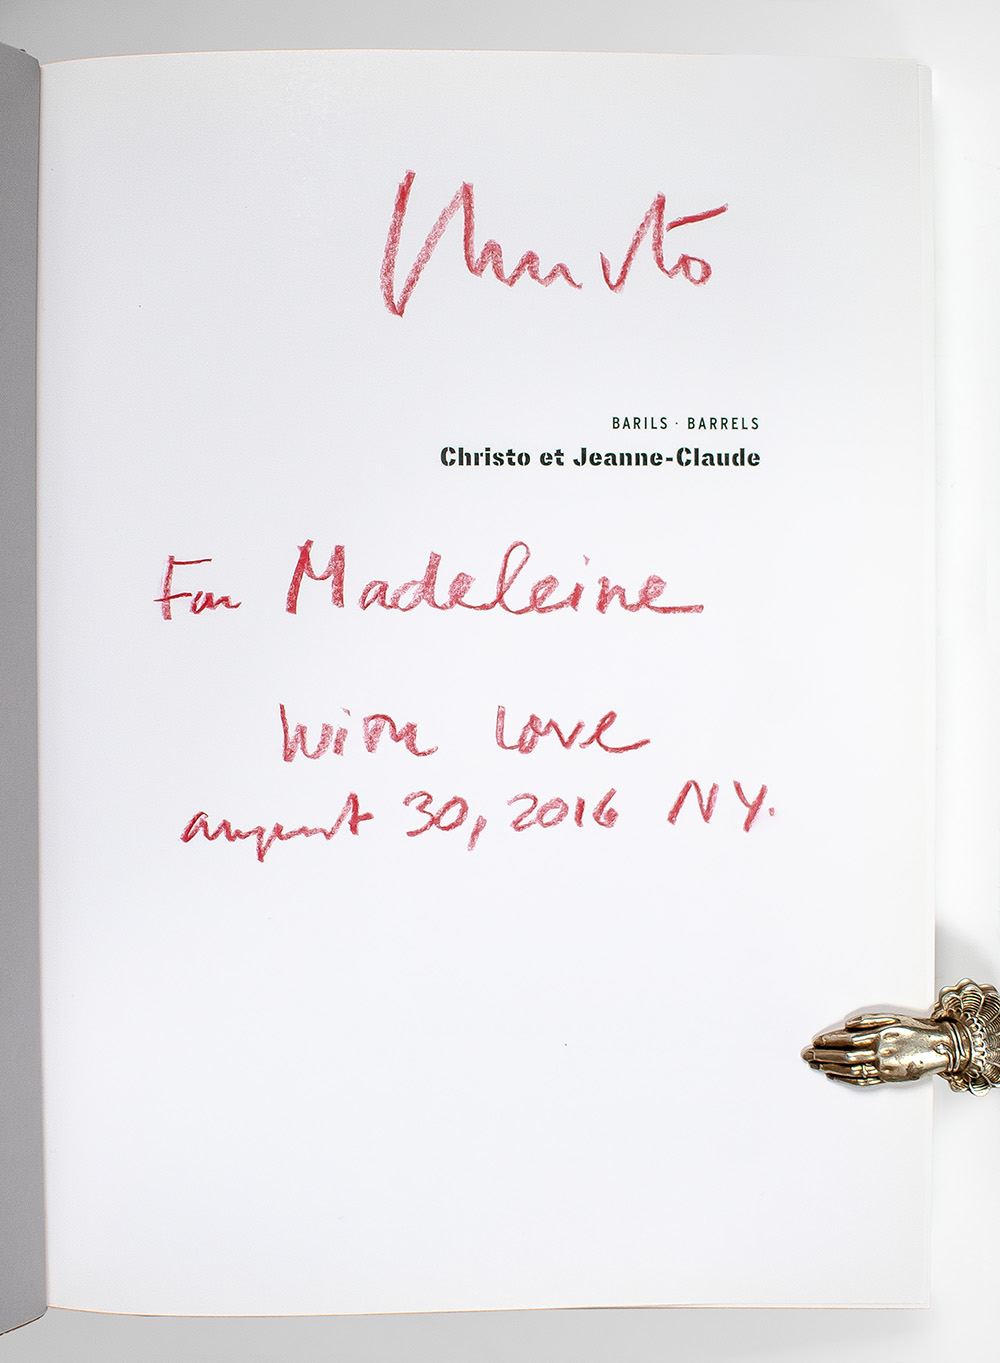 Christo
BARILS · BARRELS
Christo et Jeanne-Claude
For Madeleine
With Love
august 30, 2016 NY.